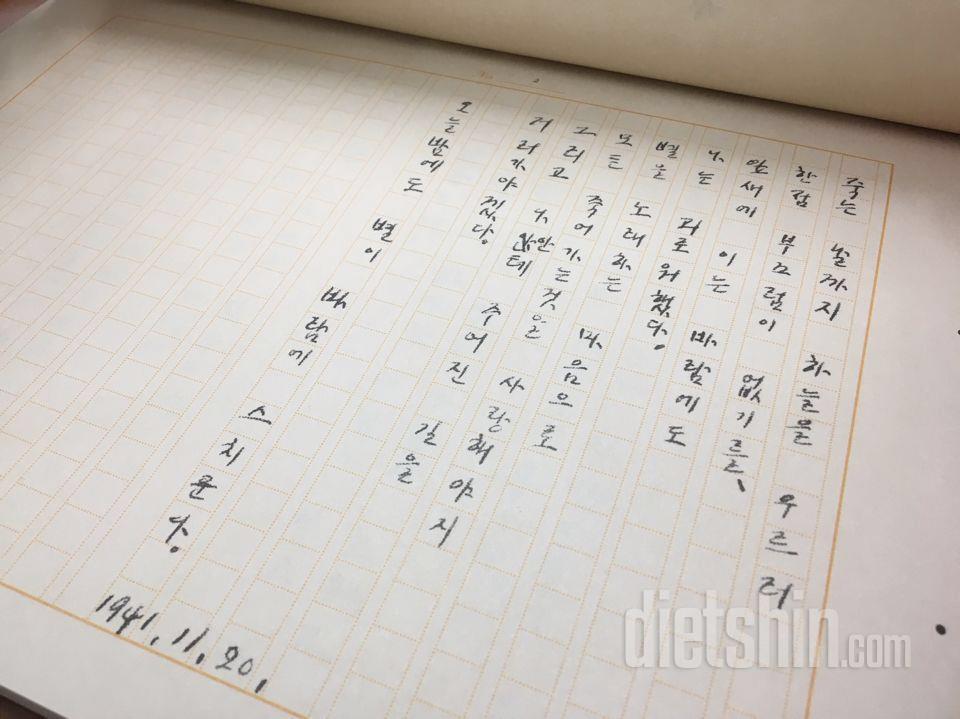 죽는 날까지 하늘을 우르러
한점 부끄럼이 없기를、
잎새에 이는 바람에도
나는 괴로워했다.
별을 노래하는 마음으로
모든 죽어가는것을 사랑해야지
그리고 나안테 주어진 길을
거러가야겠다.
오늘밤에도 별이 바람에 스치운다.
1941.11.20.
dietshin.com